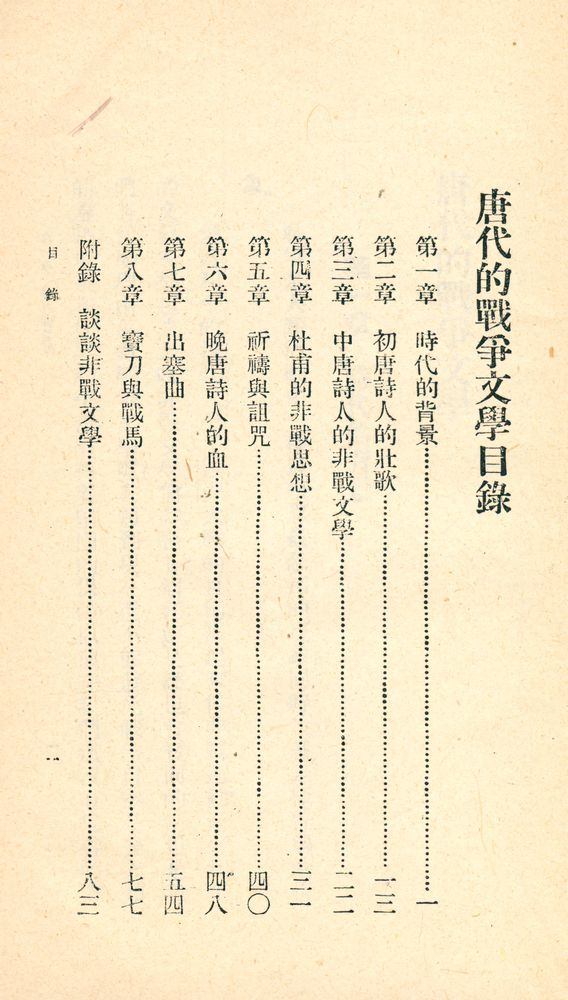 唐代的戰爭文學目錄
第一章 時代的背景……一
第二章 初唐詩人的壯歌……一三
第三章 中唐詩人的非戰文學……二二
第四章 杜甫的非戰思想……三一
第五章 祈禱與詛咒……四〇
第六章 晚唐詩人的血……四八
第七章 出塞曲……五四
第八章 寶刀與戰馬……七七
附錄 談談非戰文學……八三
目錄
一